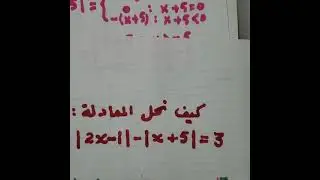 5|= { 0 : x+5=0
-(x+5) : x+5<0
كيف نحل المعادلة :
|2x-1|-|x+5|=3